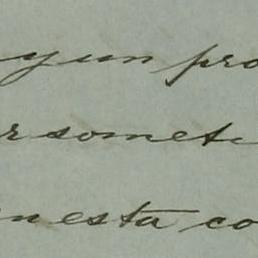 y un pro
r somet
en esta co